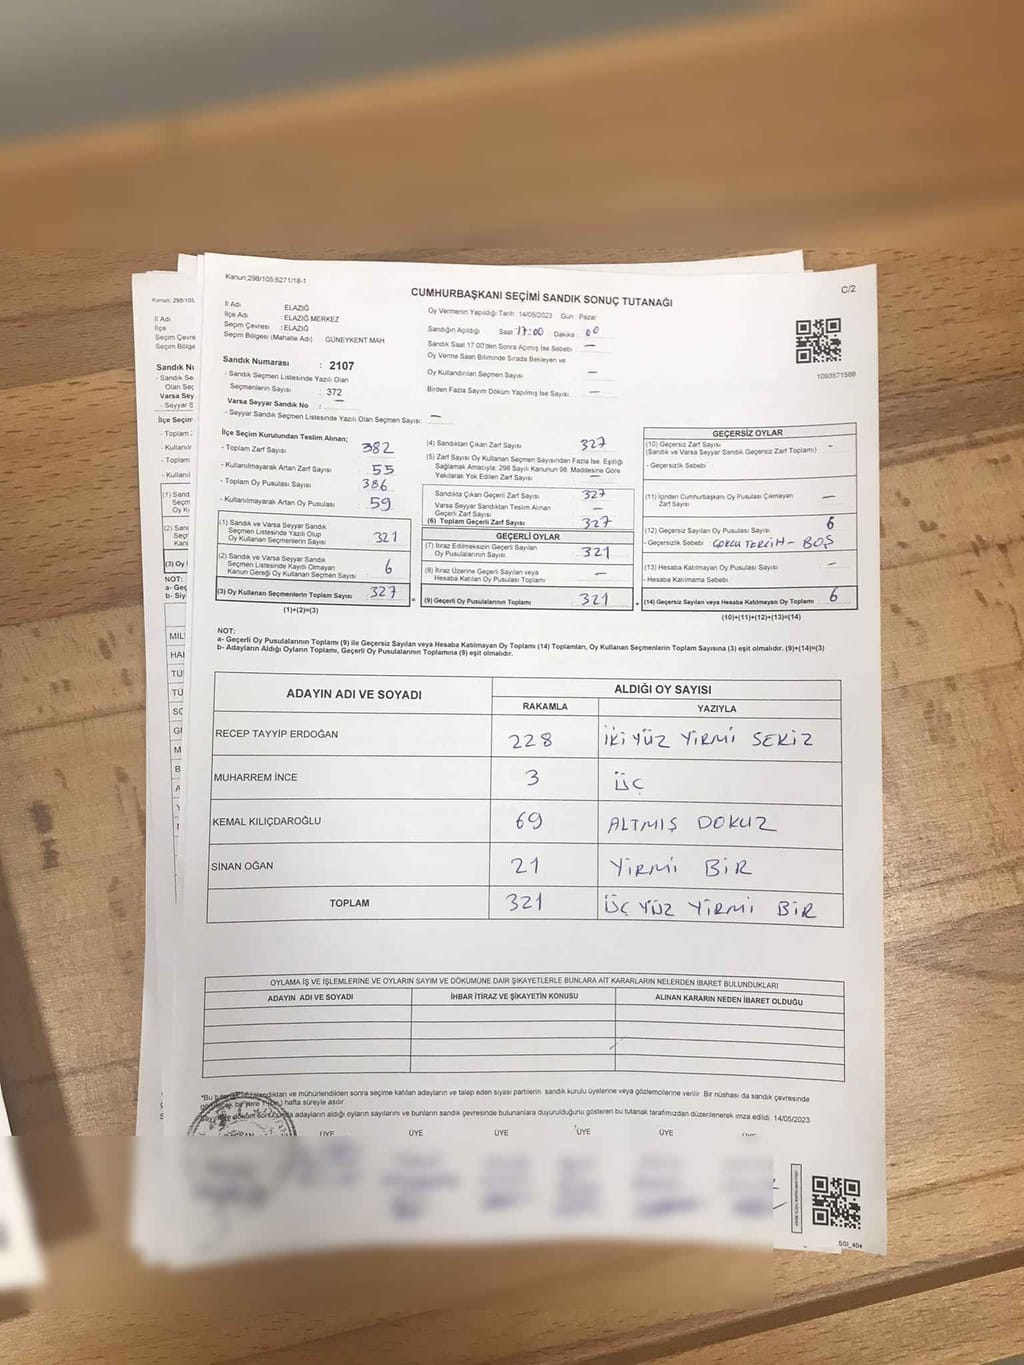 Kanun;298/105;6271/18-1
C/2
CUMHURBAŞKANI SEÇİMİ SANDIK SONUÇ TUTANAĞI
İl Adı : ELAZIĞ
İlçe Adı : ELAZIĞ MERKEZ
Seçim Çevresi : ELAZIĞ
Seçim Bölgesi (Mahalle Adı) GÜNEYKENT MAH
Sandık Numarası : 2107
- Sandık Seçmen Listesinde Yazılı Olan
Seçmenlerin Sayısı : 372
Varsa Seyyar Sandık No : —
- Seyyar Sandık Seçmen Listesinde Yazılı Olan Seçmen Sayısı: —
Oy Vermenin Yapıldığı Tarih: 14/05/2023 Gün : Pazar
Sandığın Açıldığı Saat 17:00 Dakika 00
Sandık Saat 17:00'den Sonra Açımış İse Sebebi —
Oy Verme Saati Bitiminde Sırada Bekleyen ve
Oy Kullandırılan Seçmen Sayısı —
Birden Fazla Sayım Döküm Yapılmış İse Sayısı —
1093571588
İlçe Seçim Kurulundan Teslim Alınan;
- Toplam Zarf Sayısı 382
- Kullanılmayarak Artan Zarf Sayısı 55
- Toplam Oy Pusulası Sayısı 386
- Kullanılmayarak Artan Oy Pusulası 59
(1) Sandık ve Varsa Seyyar Sandık
Seçmen Listesinde Yazılı Olup
Oy Kullanan Seçmenlerin Sayısı 321
(2) Sandık ve Varsa Seyyar Sandık
Seçmen Listesinde Kayıtlı Olmayan
Kanun Gereği Oy Kullanan Seçmen Sayısı 6
(3) Oy Kullanan Seçmenlerin Toplam Sayısı 327
(1)+(2)=(3)
(4) Sandıktan Çıkan Zarf Sayısı 327
(5) Zarf Sayısı Oy Kullanan Seçmen Sayısından Fazla İse, Eşitliği
Sağlamak Amacıyla; 298 Sayılı Kanunun 98. Maddesine Göre
Yakılarak Yok Edilen Zarf Sayısı —
Sandıkta Çıkan Geçerli Zarf Sayısı 327
Varsa Seyyar Sandıktan Teslim Alınan
Geçerli Zarf Sayısı —
(6) Toplam Geçerli Zarf Sayısı 327
GEÇERLİ OYLAR
(7) İtiraz Edilmeksizin Geçerli Sayılan
Oy Pusulalarının Sayısı 321
(8) İtiraz Üzerine Geçerli Sayılan veya
Hesaba Katılan Oy Pusulası Toplamı —
= (9) Geçerli Oy Pusulalarının Toplamı 321
GEÇERSİZ OYLAR
(10) Geçersiz Zarf Sayısı -
(Sandık ve Varsa Seyyar Sandık Geçersiz Zarf Toplamı)
- Geçersizlik Sebebi
(11) İçinden Cumhurbaşkanı Oy Pusulası Çıkmayan
Zarf Sayısı —
(12) Geçersiz Sayılan Oy Pusulası Sayısı 6
- Geçersizlik Sebebi ÇOKLU TERCİH - BOŞ
(13) Hesaba Katılmayan Oy Pusulası Sayısı —
- Hesaba Katılmama Sebebi
+ (14) Geçersiz Sayılan veya Hesaba Katılmayan Oy Toplamı 6
(10)+(11)+(12)+(13)=(14)
NOT:
a- Geçerli Oy Pusulalarının Toplamı (9) ile Geçersiz Sayılan veya Hesaba Katılmayan Oy Toplamı (14) Toplamları, Oy Kullanan Seçmenlerin Toplam Sayısına (3) eşit olmalıdır. (9)+(14)=(3)
b- Adayların Aldığı Oyların Toplamı, Geçerli Oy Pusulalarının Toplamına (9) eşit olmalıdır.
ADAYIN ADI VE SOYADI ALDIĞI OY SAYISI
RAKAMLA YAZIYLA
RECEP TAYYİP ERDOĞAN 228 İKİ YÜZ YİRMİ SEKİZ
MUHARREM İNCE 3 ÜÇ
KEMAL KILIÇDAROĞLU 69 ALTMIŞ DOKUZ
SİNAN OĞAN 21 YİRMİ BİR
TOPLAM 321 ÜÇ YÜZ YİRMİ BİR
OYLAMA İŞ VE İŞLEMLERİNE VE OYLARIN SAYIM VE DÖKÜMÜNE DAİR ŞİKAYETLERLE BUNLARA AİT KARARLARIN NELERDEN İBARET BULUNDUKLARI
ADAYIN ADI VE SOYADI İHBAR İTİRAZ VE ŞİKAYETİN KONUSU ALINAN KARARIN NEDEN İBARET OLDUĞU
ve mühürlendikten sonra seçime katılan adayların ve talep eden siyasi partilerin sandık kurulu üyelerine veya gözlemcilerine verilir. Bir nüshası da sandık çevresinde
hafta süreyle asılır
adayların aldığı oyların sayılarını ve bunların sandık çevresinde bulunanlara duyurulduğunu gösteren bu tutanak tarafımızdan düzenlenerek imza edildi. 14/05/2023
ÜYE ÜYE ÜYE ÜYE ÜYE
SSİ_404